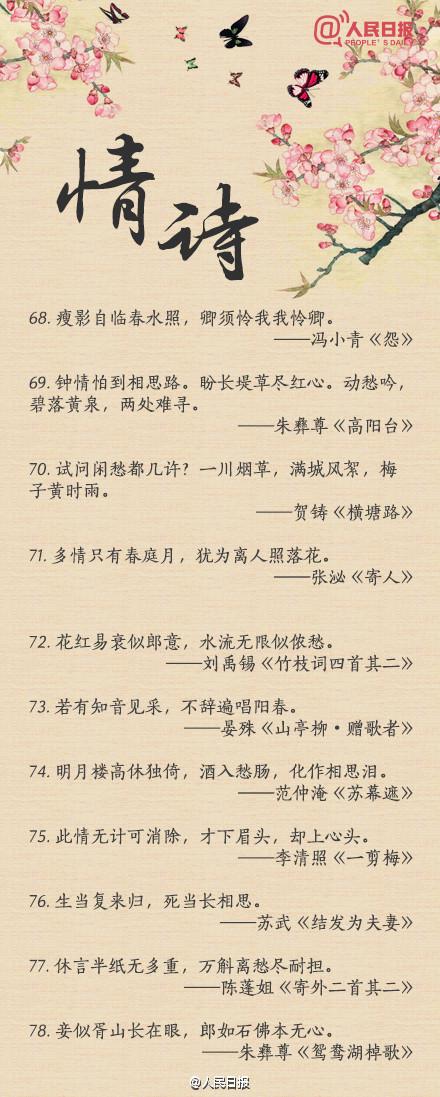 @人民日报
PEOPLE'S DAILY
情诗
68. 瘦影自临春水照，卿须怜我我怜卿。
——冯小青《怨》
69. 钟情怕到相思路。盼长堤草尽红心。动愁吟，
碧落黄泉，两处难寻。
——朱彝尊《高阳台》
70. 试问闲愁都几许？一川烟草，满城风絮，梅
子黄时雨。
——贺铸《横塘路》
71. 多情只有春庭月，犹为离人照落花。
——张泌《寄人》
72. 花红易衰似郎意，水流无限似侬愁。
——刘禹锡《竹枝词四首其二》
73. 若有知音见采，不辞遍唱阳春。
——晏殊《山亭柳·赠歌者》
74. 明月楼高休独倚，酒入愁肠，化作相思泪。
——范仲淹《苏幕遮》
75. 此情无计可消除，才下眉头，却上心头。
——李清照《一剪梅》
76. 生当复来归，死当长相思。
——苏武《结发为夫妻》
77. 休言半纸无多重，万斛离愁尽耐担。
——陈蓬姐《寄外二首其二》
78. 妾似胥山长在眼，郎如石佛本无心。
——朱彝尊《鸳鸯湖棹歌》
@人民日报